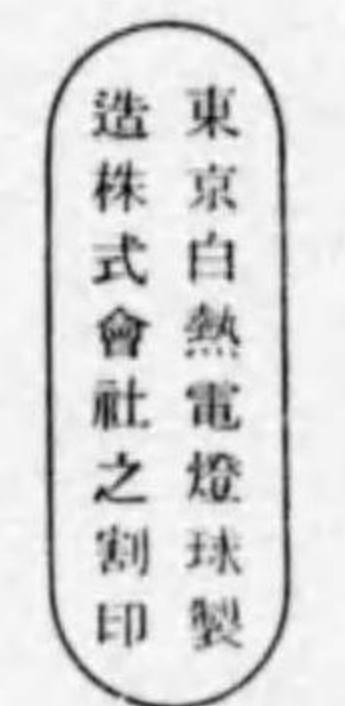 東京白熱電燈球製
造株式會社之割印